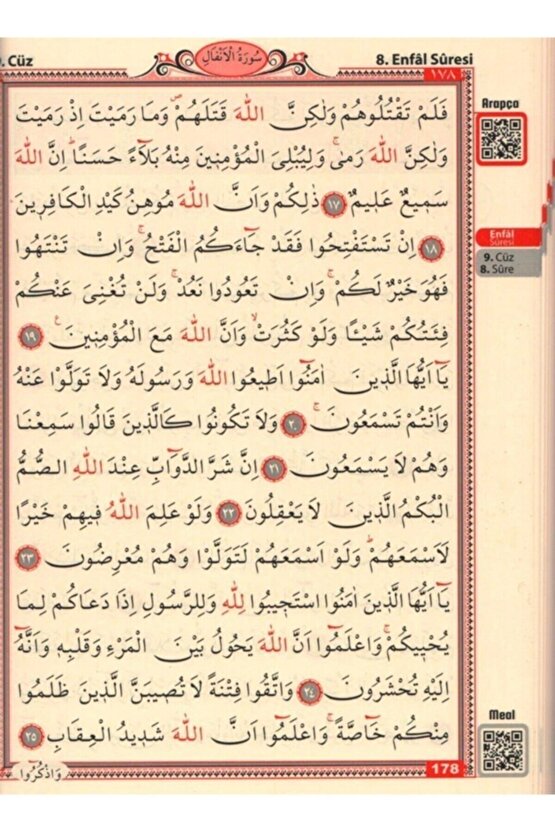 9. Cüz
سُورَةُ الْاَنْفَالِ
8. Enfâl Sûresi
١٧٨
فَلَمْ تَقْتُلُوهُمْ وَلٰكِنَّ اللّٰهَ قَتَلَهُمْ وَمَا رَمَيْتَ اِذْ رَمَيْتَ
وَلٰكِنَّ اللّٰهَ رَمٰى وَلِيُبْلِيَ الْمُؤْمِنِينَ مِنْهُ بَلَآءً حَسَنًا اِنَّ اللّٰهَ
سَمِيعٌ عَلِيمٌ ١٧ ذٰلِكُمْ وَاَنَّ اللّٰهَ مُوهِنُ كَيْدِ الْكَافِرِينَ
١٨ اِنْ تَسْتَفْتِحُوا فَقَدْ جَآءَكُمُ الْفَتْحُ وَاِنْ تَنْتَهُوا
فَهُوَ خَيْرٌ لَكُمْ وَاِنْ تَعُودُوا نَعُدْ وَلَنْ تُغْنِيَ عَنْكُمْ
فِئَتُكُمْ شَيْـًٔا وَلَوْ كَثُرَتْ وَاَنَّ اللّٰهَ مَعَ الْمُؤْمِنِينَ ١٩
يَآ اَيُّهَا الَّذِينَ اٰمَنُٓوا اَطِيعُوا اللّٰهَ وَرَسُولَهُ وَلَا تَوَلَّوْا عَنْهُ
وَاَنْتُمْ تَسْمَعُونَ ٢٠ وَلَا تَكُونُوا كَالَّذِينَ قَالُوا سَمِعْنَا
وَهُمْ لَا يَسْمَعُونَ ٢١ اِنَّ شَرَّ الدَّوَآبِّ عِنْدَ اللّٰهِ الصُّمُّ
الْبُكْمُ الَّذِينَ لَا يَعْقِلُونَ ٢٢ وَلَوْ عَلِمَ اللّٰهُ فِيهِمْ خَيْرًا
لَاَسْمَعَهُمْ وَلَوْ اَسْمَعَهُمْ لَتَوَلَّوْا وَهُمْ مُعْرِضُونَ ٢٣
يَآ اَيُّهَا الَّذِينَ اٰمَنُوا اسْتَجِيبُوا لِلّٰهِ وَلِلرَّسُولِ اِذَا دَعَاكُمْ لِمَا
يُحْيِيكُمْ وَاعْلَمُٓوا اَنَّ اللّٰهَ يَحُولُ بَيْنَ الْمَرْءِ وَقَلْبِهِ وَاَنَّهُٓ
اِلَيْهِ تُحْشَرُونَ ٢٤ وَاتَّقُوا فِتْنَةً لَا تُصِيبَنَّ الَّذِينَ ظَلَمُوا
مِنْكُمْ خَآصَّةً وَاعْلَمُٓوا اَنَّ اللّٰهَ شَدِيدُ الْعِقَابِ ٢٥
وَاذْكُرُٓوا
178
Arapça
Enfâl
Sûresi
9. Cüz
8. Sûre
Meal